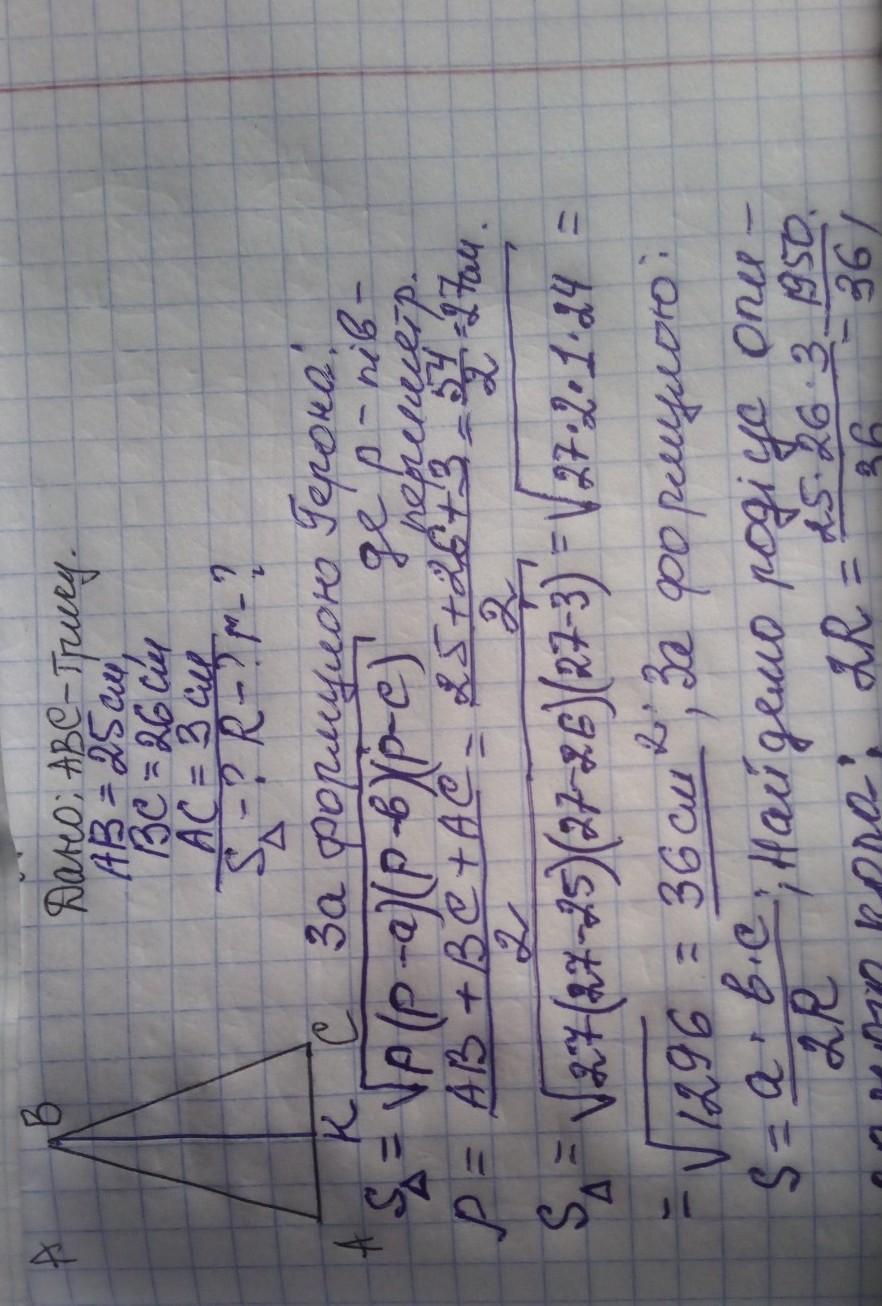 Дано: ABC-Трику.
AB = 25 см,
BC = 26 см
AC = 3 см
S△ -? R -? r -?
B
A K C
За формулою Герона:
S△ = √p(p-a)(p-b)(p-c) де p - пів-
периметр.
p = (AB + BC + AC)/2 = (25+26+3)/2 = 54/2 = 27см.
S△ = √27(27-25)(27-26)(27-3) = √27·2·1·24 =
= √1296 = 36 см²; За формулою:
S = a·b·c/2R; Найдемо родіус опи-
2R = 25·26·3/36 = 1950/36,